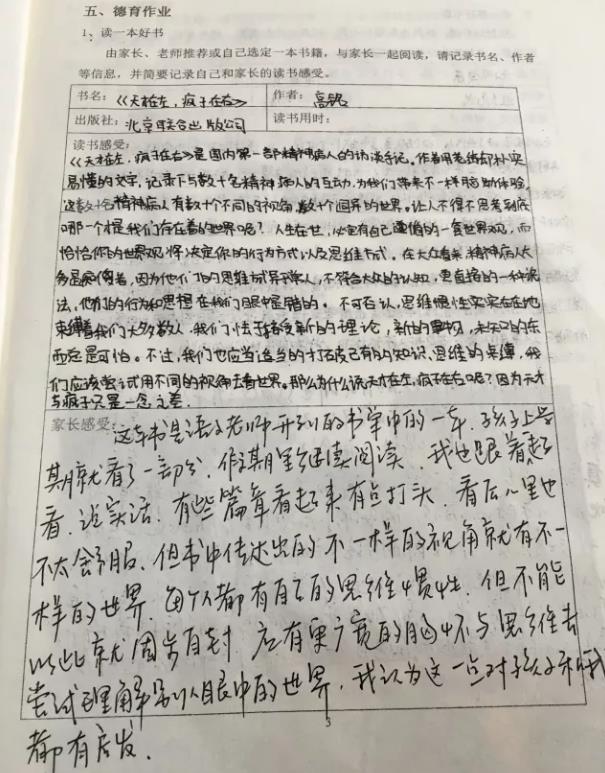 五、德育作业
1、读一本好书
由家长、老师推荐或自己选定一本书籍，与家长一起阅读，请记录书名、作者
等信息，并简要记录自己和家长的读书感受。
书名：《天才在左，疯子在右》 作者：高铭
出版社：北京联合出版公司 读书用时：
读书感受：
《天才在左，疯子在右》是国内第一部精神病人的访谈手记。作者用老练却朴实
易懂的文字，记录下与数十名精神病人的互动，为我们带来不一样的体验。
这数十名精神病人有数十个不同的视角，数十个迥异的世界。让人不得不思考到底
哪一个才是我们存在着的世界呢？人生在世，必定有自己遵循的一套世界观，而
恰恰你的世界观将决定你的行为方式以及思维方式。在大众看来，精神病人大
多是疯傻者，因为他们的思维方式异于常人，不符合大众的认知，更直接的一种说
法，他们的行为和思想在我们眼中是错的。不可否认，思维惯性实实在在地
束缚着我们大多数人。我们怯于接受新的理论，新的事物，未知的东
西总是可怕。不过，我们也应当适当的打破已有的知识、思维的桌缚，我
们应该尝试用不同的视角去看世界。那么为什么说天才在左，疯子在右呢？因为天才
与疯子只是一念之差。
家长感受：这本书是语文老师开列的书单中的一本，孩子上学
期就看了一部分，假期里继续阅读，我也跟着起
看，说实话，有些篇章看起来有点打头，看后心里也
不太舒服，但书中传达出的不一样的视角就有不一
样的世界，每个人都有自己的思维惯性，但不能
以此就固步自封，应有更广宽的胸怀与思维去
尝试理解别人眼中的世界，我认为这一点对孩子和我
都有启发。
3